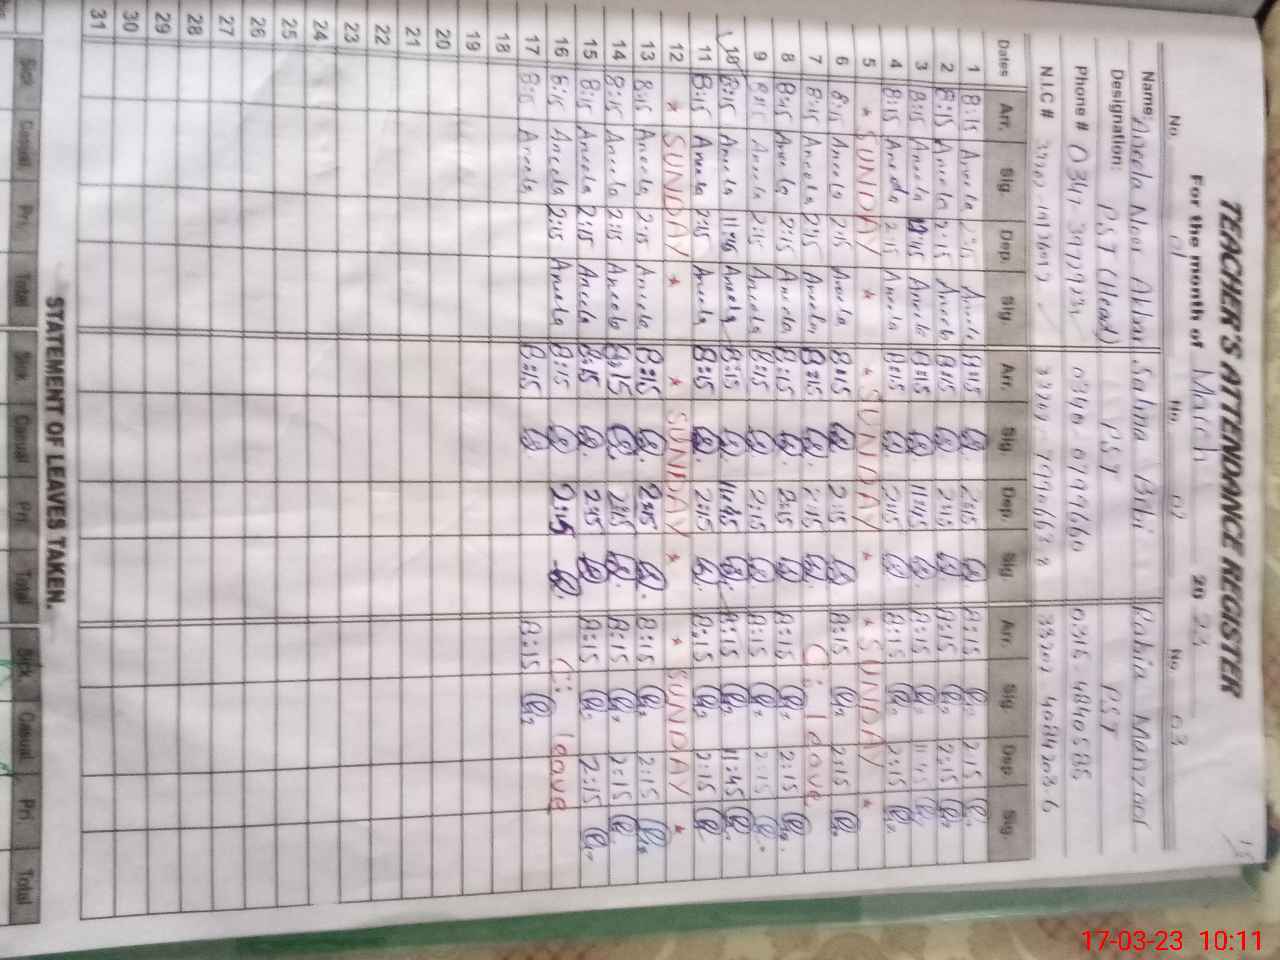 TEACHER'S ATTENDANCE REGISTER
For the month of March 20 23
No. 01 No. 02 No. 03
Name: Aneela Noor Akbar Salma Bibi Rabia Manzoor
Designation: PST (Head) PST PST
Phone # 0340 0799660 0316 4840585
N.I.C #
Dates Arr. Sig. Dep. Sig. Arr. Sig. Dep. Sig. Arr. Sig. Dep. Sig.
1 8:15 Aneela 2:15 Aneela 8:15 2:15 8:15 2:15
2 8:15 Aneela 2:15 Aneela 8:15 2:15 8:15 2:15
3 8:15 Aneela 11:45 Aneela 8:15 11:45 8:15 11:45
4 8:15 Aneela 2:15 Aneela 8:15 2:15 8:15 2:15
5 * SUNDAY * * SUNDAY * * SUNDAY *
6 8:15 Aneela 2:15 Aneela 8:15 2:15 8:15 2:15
7 8:15 Aneela 2:15 Aneela 8:15 2:15 C: leave
8 8:15 Aneela 2:15 Aneela 8:15 2:15 8:15 2:15
9 8:15 Aneela 2:15 Aneela 8:15 2:15 8:15 2:15
10 8:15 Aneela 11:45 Aneela 8:15 11:45 8:15 11:45
11 8:15 Aneela 2:15 Aneela 8:15 2:15 8:15 2:15
12 * SUNDAY * * SUNDAY * * SUNDAY *
13 8:15 Aneela 2:15 Aneela 8:15 2:15 8:15 2:15
14 8:15 Aneela 2:15 Aneela 8:15 2:15 8:15 2:15
15 8:15 Aneela 2:15 Aneela 8:15 2:15 8:15 2:15
16 8:15 Aneela 2:15 Aneela 8:15 2:15 C: leave
17 8:15 Aneela 8:15 8:15
18
19
20
21
22
23
24
25
26
27
28
29
30
31
STATEMENT OF LEAVES TAKEN.
Sick Casual Pri. Total Sick Casual Pri Total Sick Casual Pri. Total
17-03-23 10:11